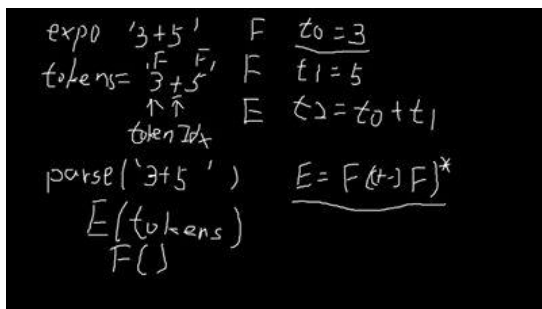 expo '3+5' F t0 = 3
F F
tokens= '3+5' F t1 = 5
↑ ↑ E t2 = t0 + t1
tokenIdx
parse('3+5') E = F([+-] F)*
E(tokens)
F()